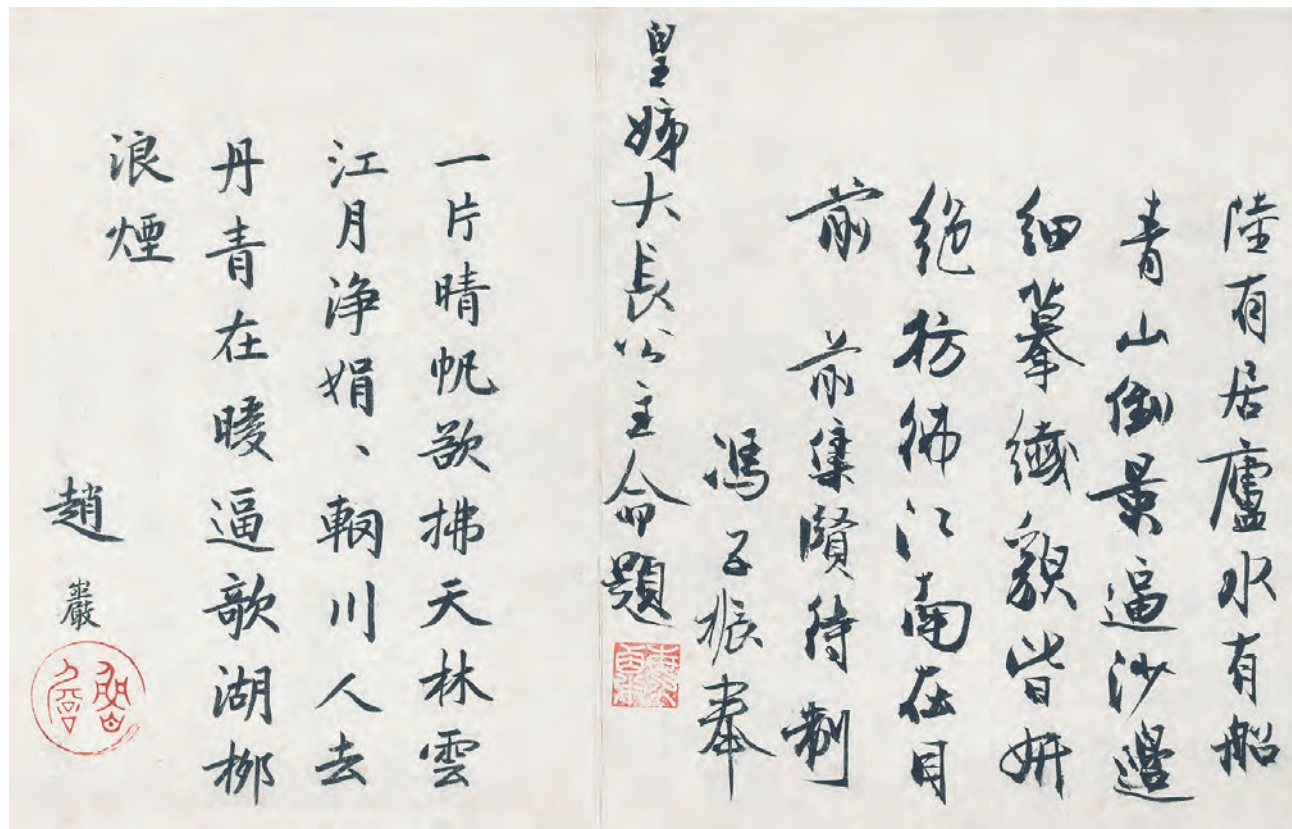 陸有居廬水有船
青山倒景逼沙邊
細摹纖貌皆妍
絕彷彿江南在目
前 前集賢待制
馮子振奉
皇姊大長公主命題
一片晴帆欲拂天林雲
江月淨娟、輞川人去
丹青在暖逼歌湖柳
浪煙
趙巖